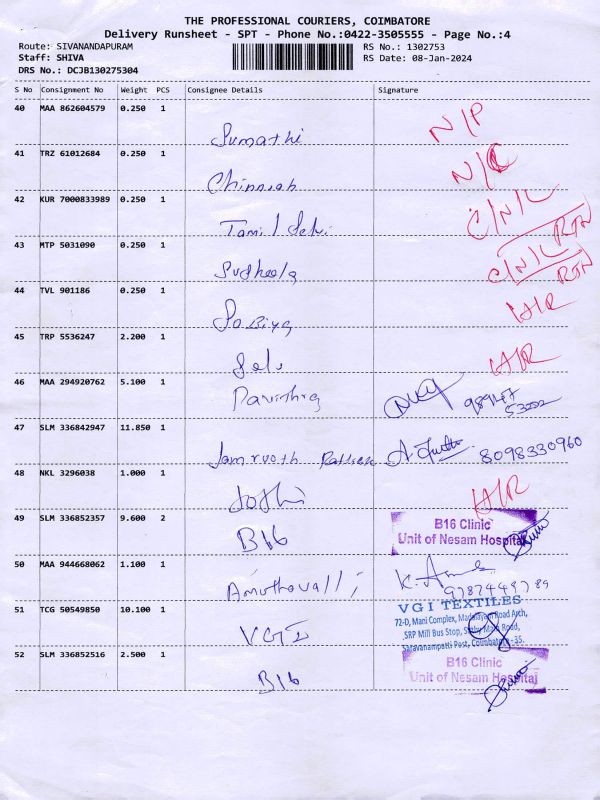 THE PROFESSIONAL COURIERS, COIMBATORE
Delivery Runsheet - SPT - Phone No.:0422-3505555 - Page No.:4
Route: SIVANANDAPURAM RS No.: 1302753
Staff: SHIVA RS Date: 08-Jan-2024
DRS No.: DCJB130275304
S No Consignment No Weight PCS Consignee Details Signature
40 MAA 862604579 0.250 1
Sumathi N/P
41 TRZ 61012684 0.250 1
Chinniah N/C
42 KUR 7000833989 0.250 1
Tamil Selvi C/N/L
43 MTP 5031090 0.250 1 RTN
Susheela C/N/L RTN
44 TVL 901186 0.250 1
Sobiya
45 TRP 5536247 2.200 1
Selv
46 MAA 294920762 5.100 1
Pavithra 98947
53202
47 SLM 336842947 11.850 1
8098330960
48 NKL 3296038 1.000 1
Jothi
49 SLM 336852357 9.600 2 B16 Clinic
B16 Unit of Nesam Hospital
50 MAA 944668062 1.100 1
Amuthavalli
51 TCG 50549850 10.100 1 VGI TEXTILES
72-D, Mani Complex, Road Arch,
VGI SRP Mill Bus Stop, Road,
Saravanampatti Post, Coimbatore-35.
52 SLM 336852516 2.500 1 B16 Clinic
B16 Unit of Nesam Hospital